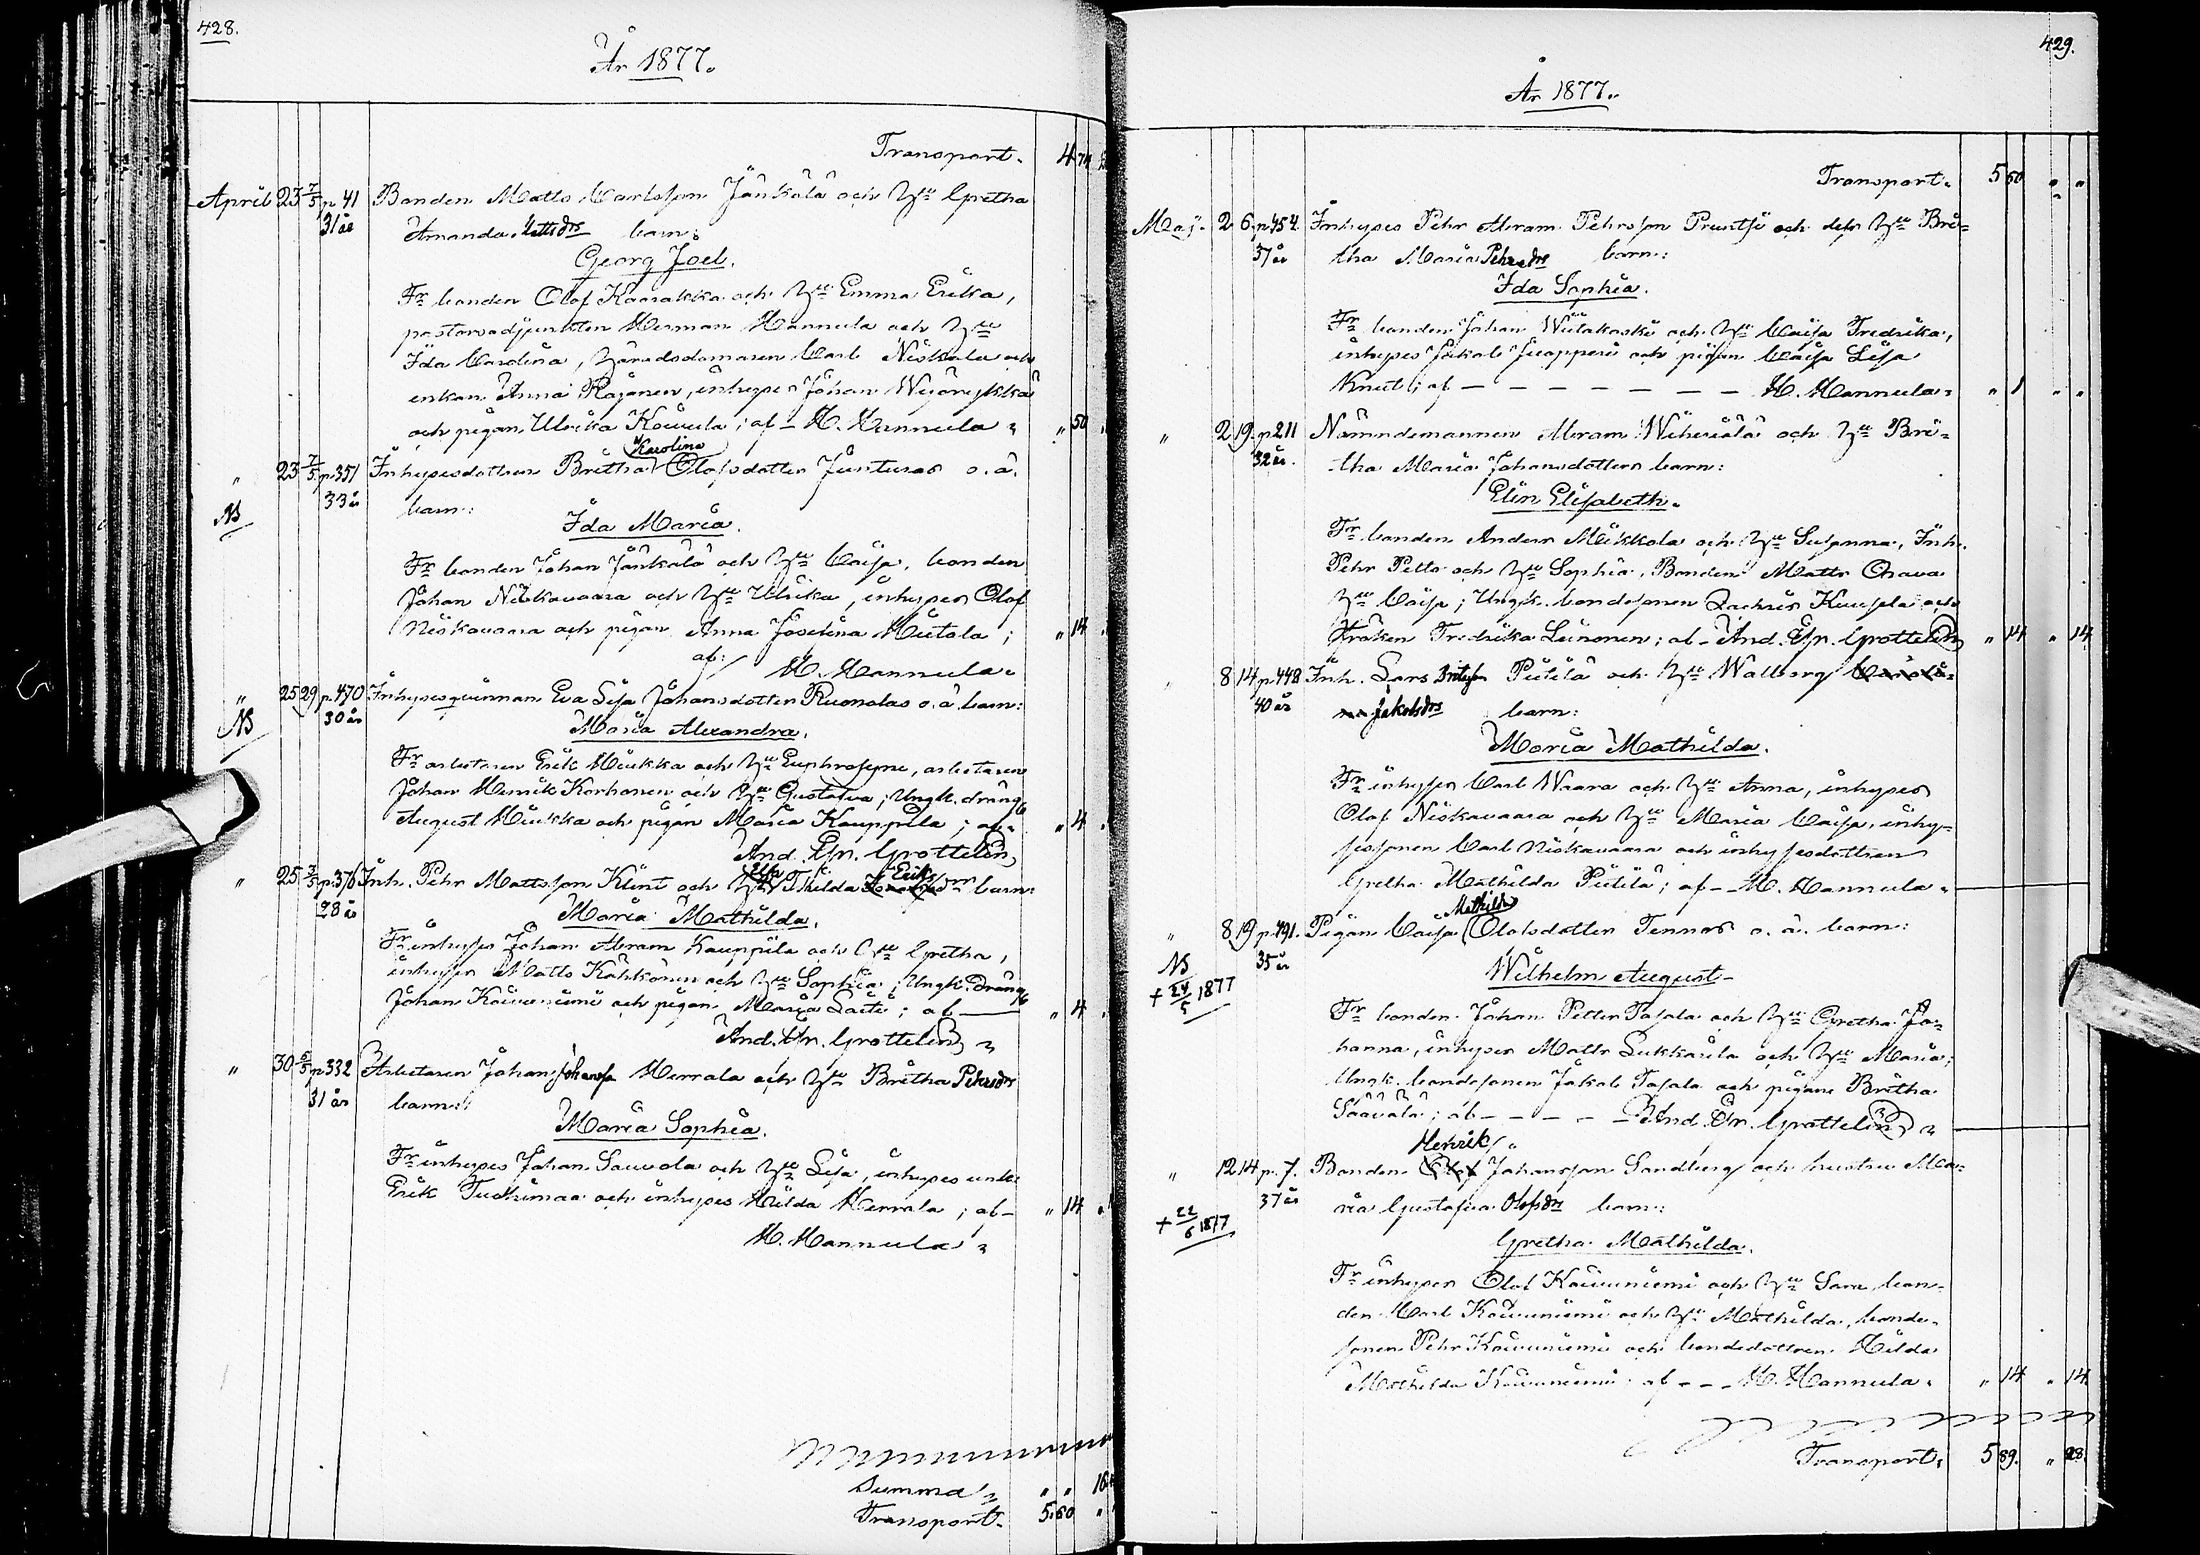 428.
År 1877.
Transport. 4 74
April 23 7/5 p. 41 Bonden Matts Carlsson Jänkälä och Hu Gretha
31 år Amanda Mattsdr barn:
Georg Joel.
Fr. bonden Olof Kaarakka och Hu Emma Erika,
pastorsadjunkten Herman Hannula och Hu
Ida Carolina, häradsdomaren Carl Niskala och
enkan Anna Rajanen, inhyses Johan
och pigan Ulrika Kouvula; af – H. Hannula „ 50
Karolina
„ 23 7/5 p. 351 Inhysesdottren Britha Olofsdotter Junturas o. ä.
NB 33 år barn:
Ida Maria.
Fr bonden Johan Jänkälä och Hu Caisa, bonden
Johan Niskavaara och Hu Ulrika, inhyses Olof
Niskavaara och pigan Anna Josefina Hietala; „ 14
af: H. Hannula.
„ 25 29 p. 470 Inhysesqvinnan Eva Lisa Johansdotter Ruonalas o. ä. barn:
NB 30 år
Maria Alexandra.
Fr arbetaren Erik Hiukka och Hu Euphrosyne, arbetaren
Johan Henrik Korhonen och Hu Gustafva; Ungk. dräng
August Hiukka och pigan Maria Kauppila; af „ 4
And. Gr. Grottelin
„ 25 p. 376 Inh. Pehr Mattsson Klint och Hu Thilda Eriksdr barn:
28 år Maria Mathilda.
Fr inhyses Johan Abram Kauppila och Hu Gretha,
inhyses Matts Kähkönen och Hu Sophia; Ungk. dräng
Johan Kouvuniemi och pigan Maria Laiti; af — „ 4
And. Gr. Grottelin
„ 30 6/5 p. 332 Arbetaren Johan Johansson Herrala och Hu Britha Pehrsdr
31 år barn:
Maria Sophia.
Fr inhyses Johan Sauvola och Hu Lisa, inhyses
Erik Tuohimaa och inhyses Hilda Herrala; af – „ 14
H. Hannula
Summa „ „ 16
Transport. 5 60
429.
År 1877.
Transport. 5 60 „ „
Maj. 2 6 p. 454. Inhyses Pehr Abram Pehrsson Pruntsi och dess Hu Bri-
37 år tha Maria Pehrsdr barn:
Ida Sophia.
Fr bonden Johan Wiitakoski och Hu Caisa Fredrika,
inhyses Jakob Juopperi och pigan Caisa Lisa
Knut; af – – – – – – – H. Hannula. „ 1 „ „
„ 2 19 p. 211 Nämndemannen Abram Wiheriälä och Hu Bri-
32 år. tha Maria Johansdotters barn:
Elin Elisabeth.
Fr. bonden Anders Mikkola och Hu Susanna, Inh.
Pehr Pelto och Hu Sophia, Bonden Matts Orava
Hu Caisa; Ungk. bondesonen Zachris Kuusela och
Fröken Fredrika Leinonen; af – And. Gr. Grottelin „ 14 „ 14
„ 8 14 p. 448 Inh. Lars Piitilä och Hu Walborg
40 år Jakobsdr barn:
Maria Mathilda.
Fr inhyses Carl Waara och Hu Anna, inhyses
Olof Niskavaara och Hu Maria Caisa, inhy-
sessonen Carl Niskavaara och inhysesdottren
Gretha Mathilda Piitilä; af – H. Hannula.
Mathilda
„ 8 19 p. 491. Pigan Caisa Olofsdotter Tennos o. ä. barn:
NB 35 år
+ 24/5 1877 Wilhelm August –
Fr bonden Johan Petter Tasala och Hu Gretha Jo-
hanna, inhyses Matts Lukkarila och Hu Maria;
Ungk. bondesonen Jakob Tasala och pigan Britha
Säävälä; af – – – – And. Gr. Grottelin
Henrik
„ 12 14 p. 7. Bonden Olof Johansson Sandberg och hustru Ma-
37 år ria Gustafva Olofsdr barn:
+ 22/6 1877 Gretha Mathilda.
Fr inhyses Olof Kouvuniemi och Hu Sara, bon-
den Carl Kouvuniemi och Hu Mathilda, bonde-
sonen Pehr Kouvuniemi och bondedottren Hilda
Mathilda Kouvuniemi; af – – – H. Hannula. „ 14 „ 14.
Transport. 5 89. „ 28.